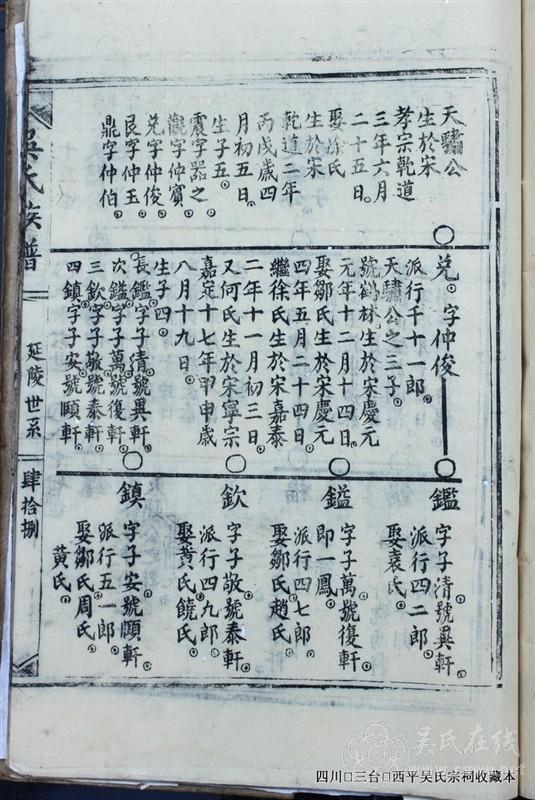 天驌公
生於宋
孝宗乾道
三年六月
二十五日。
娶徐氏
生於宋
乾道二年
丙戌歲四
月初五日。
生子五。
震字器之。
觀字仲賓。
兌字仲俊。
艮字仲玉。
鼎字仲伯。
兌。字仲俊
派行千十一郎。
天驌公之三子。
號鶴林生於宋慶元
元年十二月十四日。
娶鄒氏生於宋慶元
四年五月二十四日。
繼徐氏生於宋嘉泰
二年十一月初三日。
又何氏生於宋寧宗
嘉定十七年甲申歲
八月十九日。
生子四。
長鑑字子清號巽軒。
次鎰字子萬號復軒。
三欽字子敬號泰軒。
四鎮字子安號頤軒。
鑑
字子清號巽軒。
派行四二郎。
娶袁氏。
鎰
字子萬號復軒。
即一鳳。
派行四七郎。
娶鄒氏趙氏。
欽
字子敬號泰軒。
派行四九郎。
娶黃氏饒氏。
鎮
字子安號頤軒。
派行五一郎。
娶鄒氏周氏。
黃氏。
吳氏族譜
延陵世系
肆拾捌
吴氏在线
www.cnwww.net
四川□三台□西平吴氏宗祠收藏本